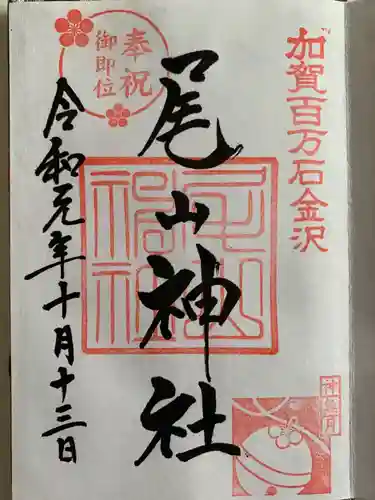 加賀百万石金沢
奉祝
御即位
尾山神社
令和元年十月十三日
尾山神社